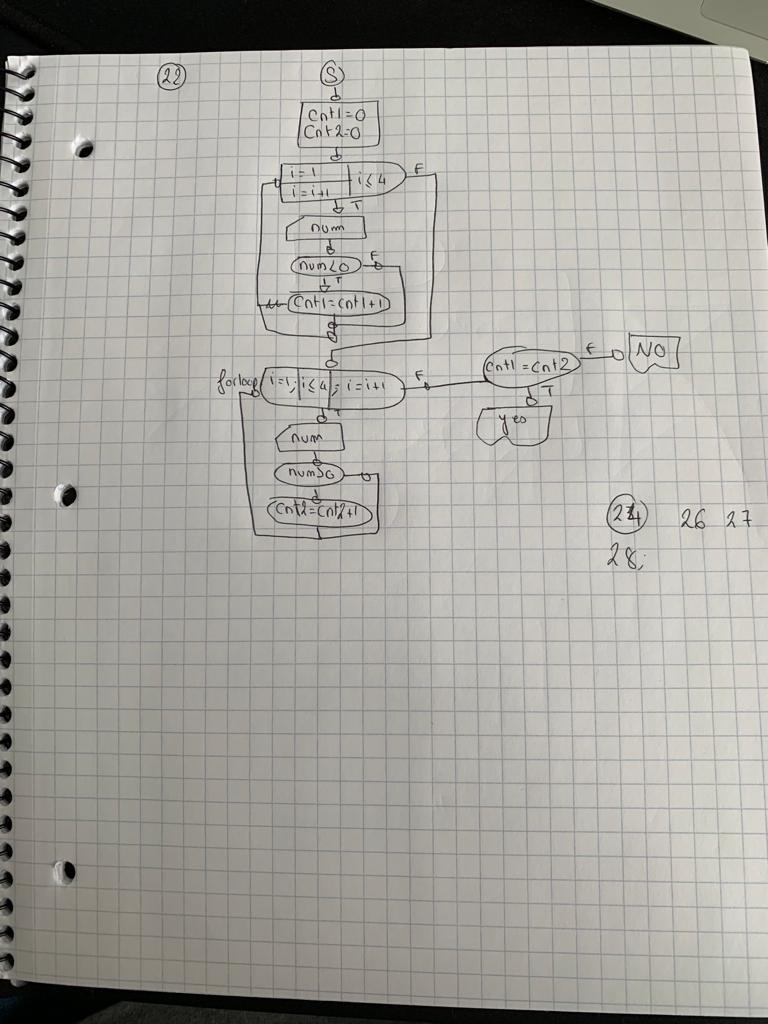 22
S
Cnt1=0
Cnt2=0
i=1
i=i+1
i≤4
F
T
num
num<0
F
T
Cnt1=cnt1+1
for loop
i=1; i≤4; i=i+1
F
T
num
num>0
Cnt2=cnt2+1
cnt1=cnt2
F
NO
T
yes
26 27
28;